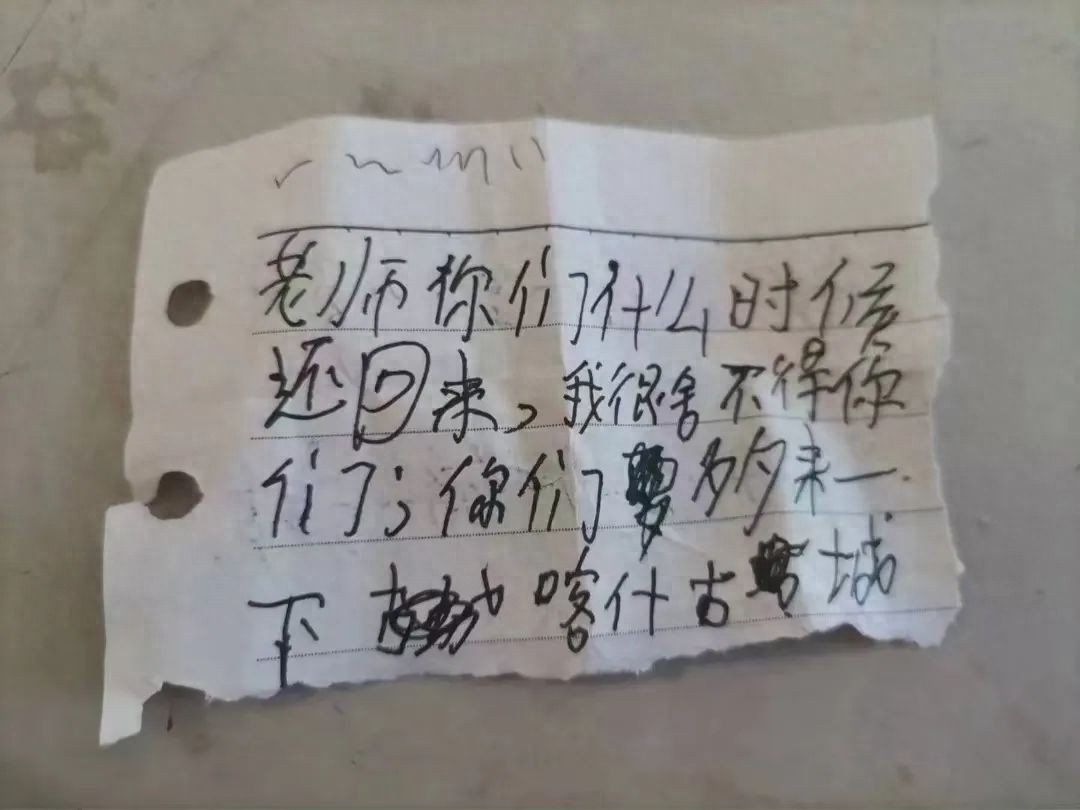 老师你们什么时候
还回来，我很舍不得你
们，你们要多多来一
下喀什古城